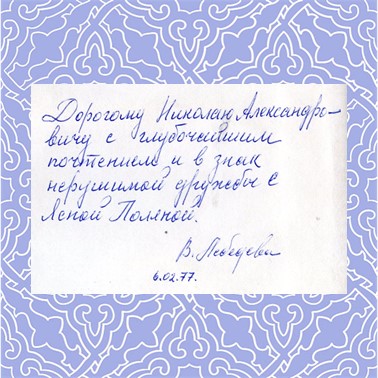 Дорогому Николаю Александро-
вичу с глубочайшим
почтением и в знак
нерушимой дружбы с
Ясной Поляной.
В. Лебедева
6.02.77.